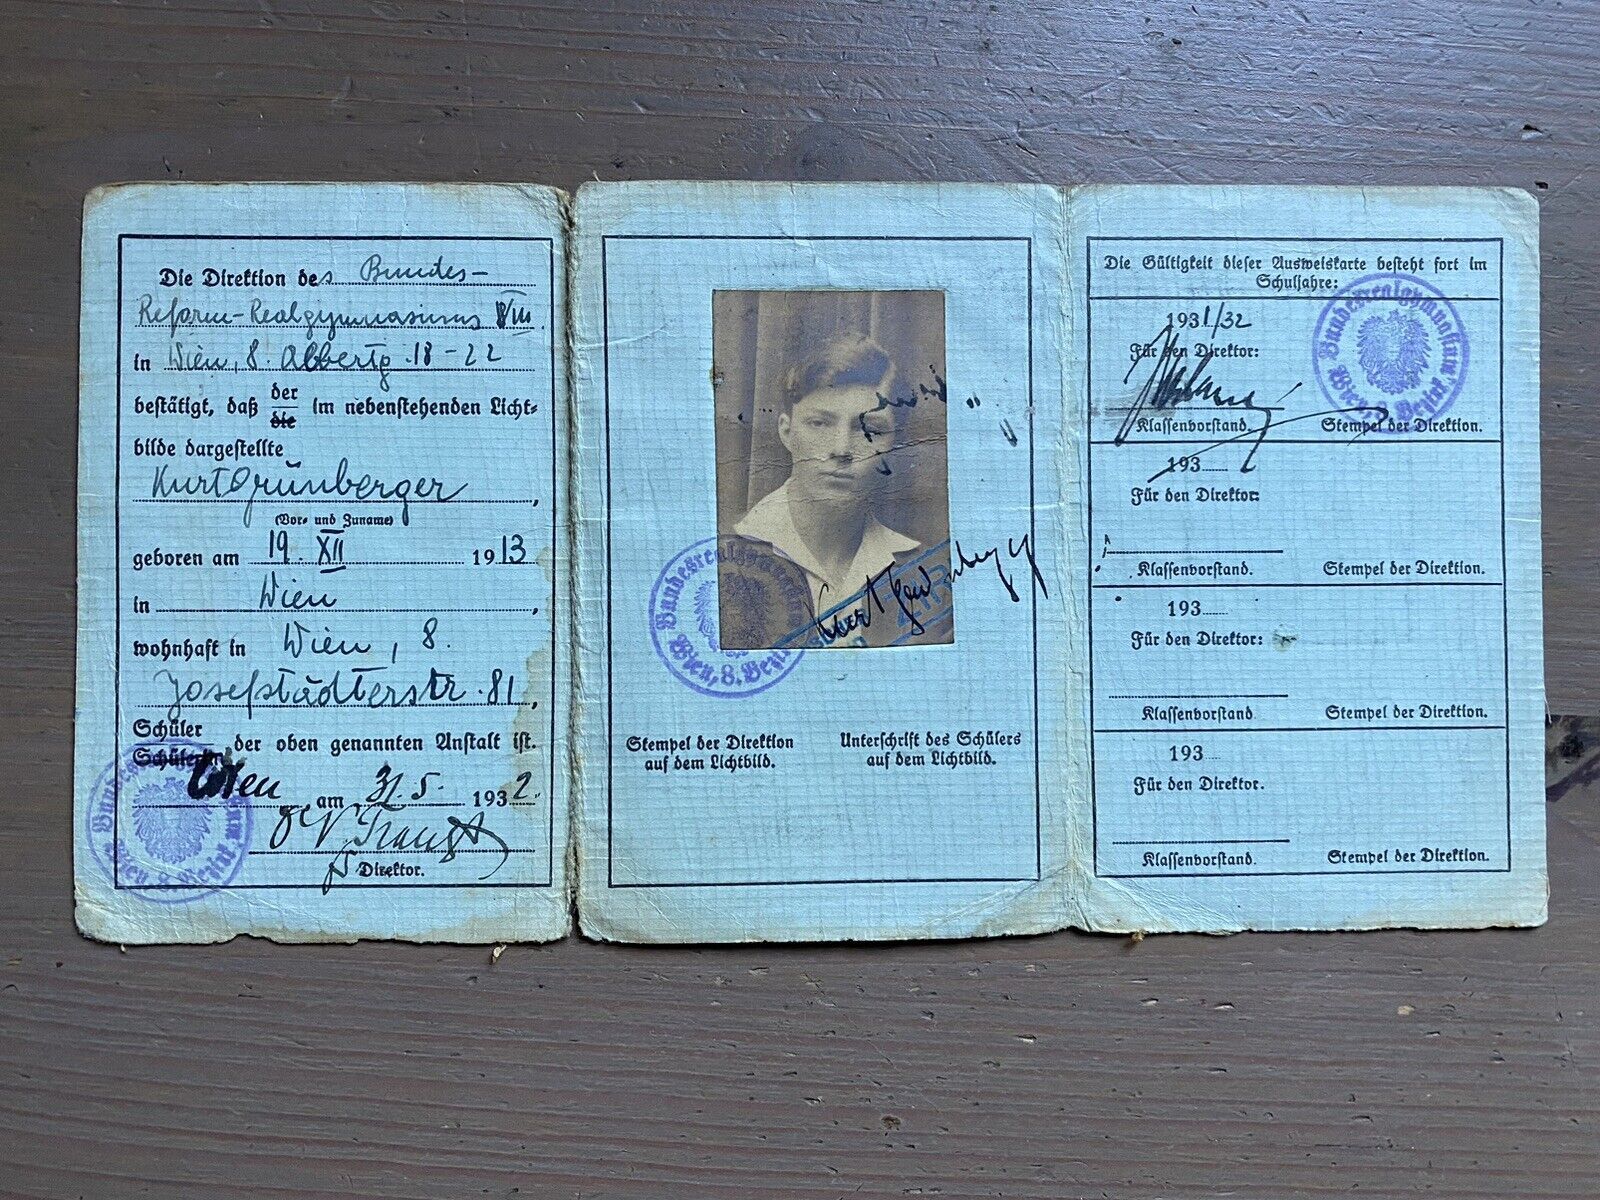 Die Direktion des Bundes-
Reform-Realgymnasiums VIII.
in Wien, 8. Albertg. 18-22
bestätigt, daß der
die im nebenstehenden Licht-
bilde dargestellte
Kurt Grünberger,
(Vor- und Zuname)
geboren am 19. XII 1913
in Wien,
wohnhaft in Wien, 8.
Josefstädterstr. 81,
Schüler
Schülerin der oben genannten Anstalt ist.
Wien am 31. 5. 1932.
Direktor.
Bundesrealgymnasium
Wien, 8. Bezirk
Kurt
Bundesrealgymnasium
Wien, 8. Bezirk
Stempel der Direktion
auf dem Lichtbild.
Unterschrift des Schülers
auf dem Lichtbild.
Die Gültigkeit dieser Ausweiskarte besteht fort im
Schuljahre:
1931/32
Für den Direktor:
Bundesrealgymnasium
Wien, 8. Bezirk
Klassenvorstand. Stempel der Direktion.
193
Für den Direktor:
Klassenvorstand. Stempel der Direktion.
193
Für den Direktor:
Klassenvorstand. Stempel der Direktion.
193
Für den Direktor.
Klassenvorstand. Stempel der Direktion.